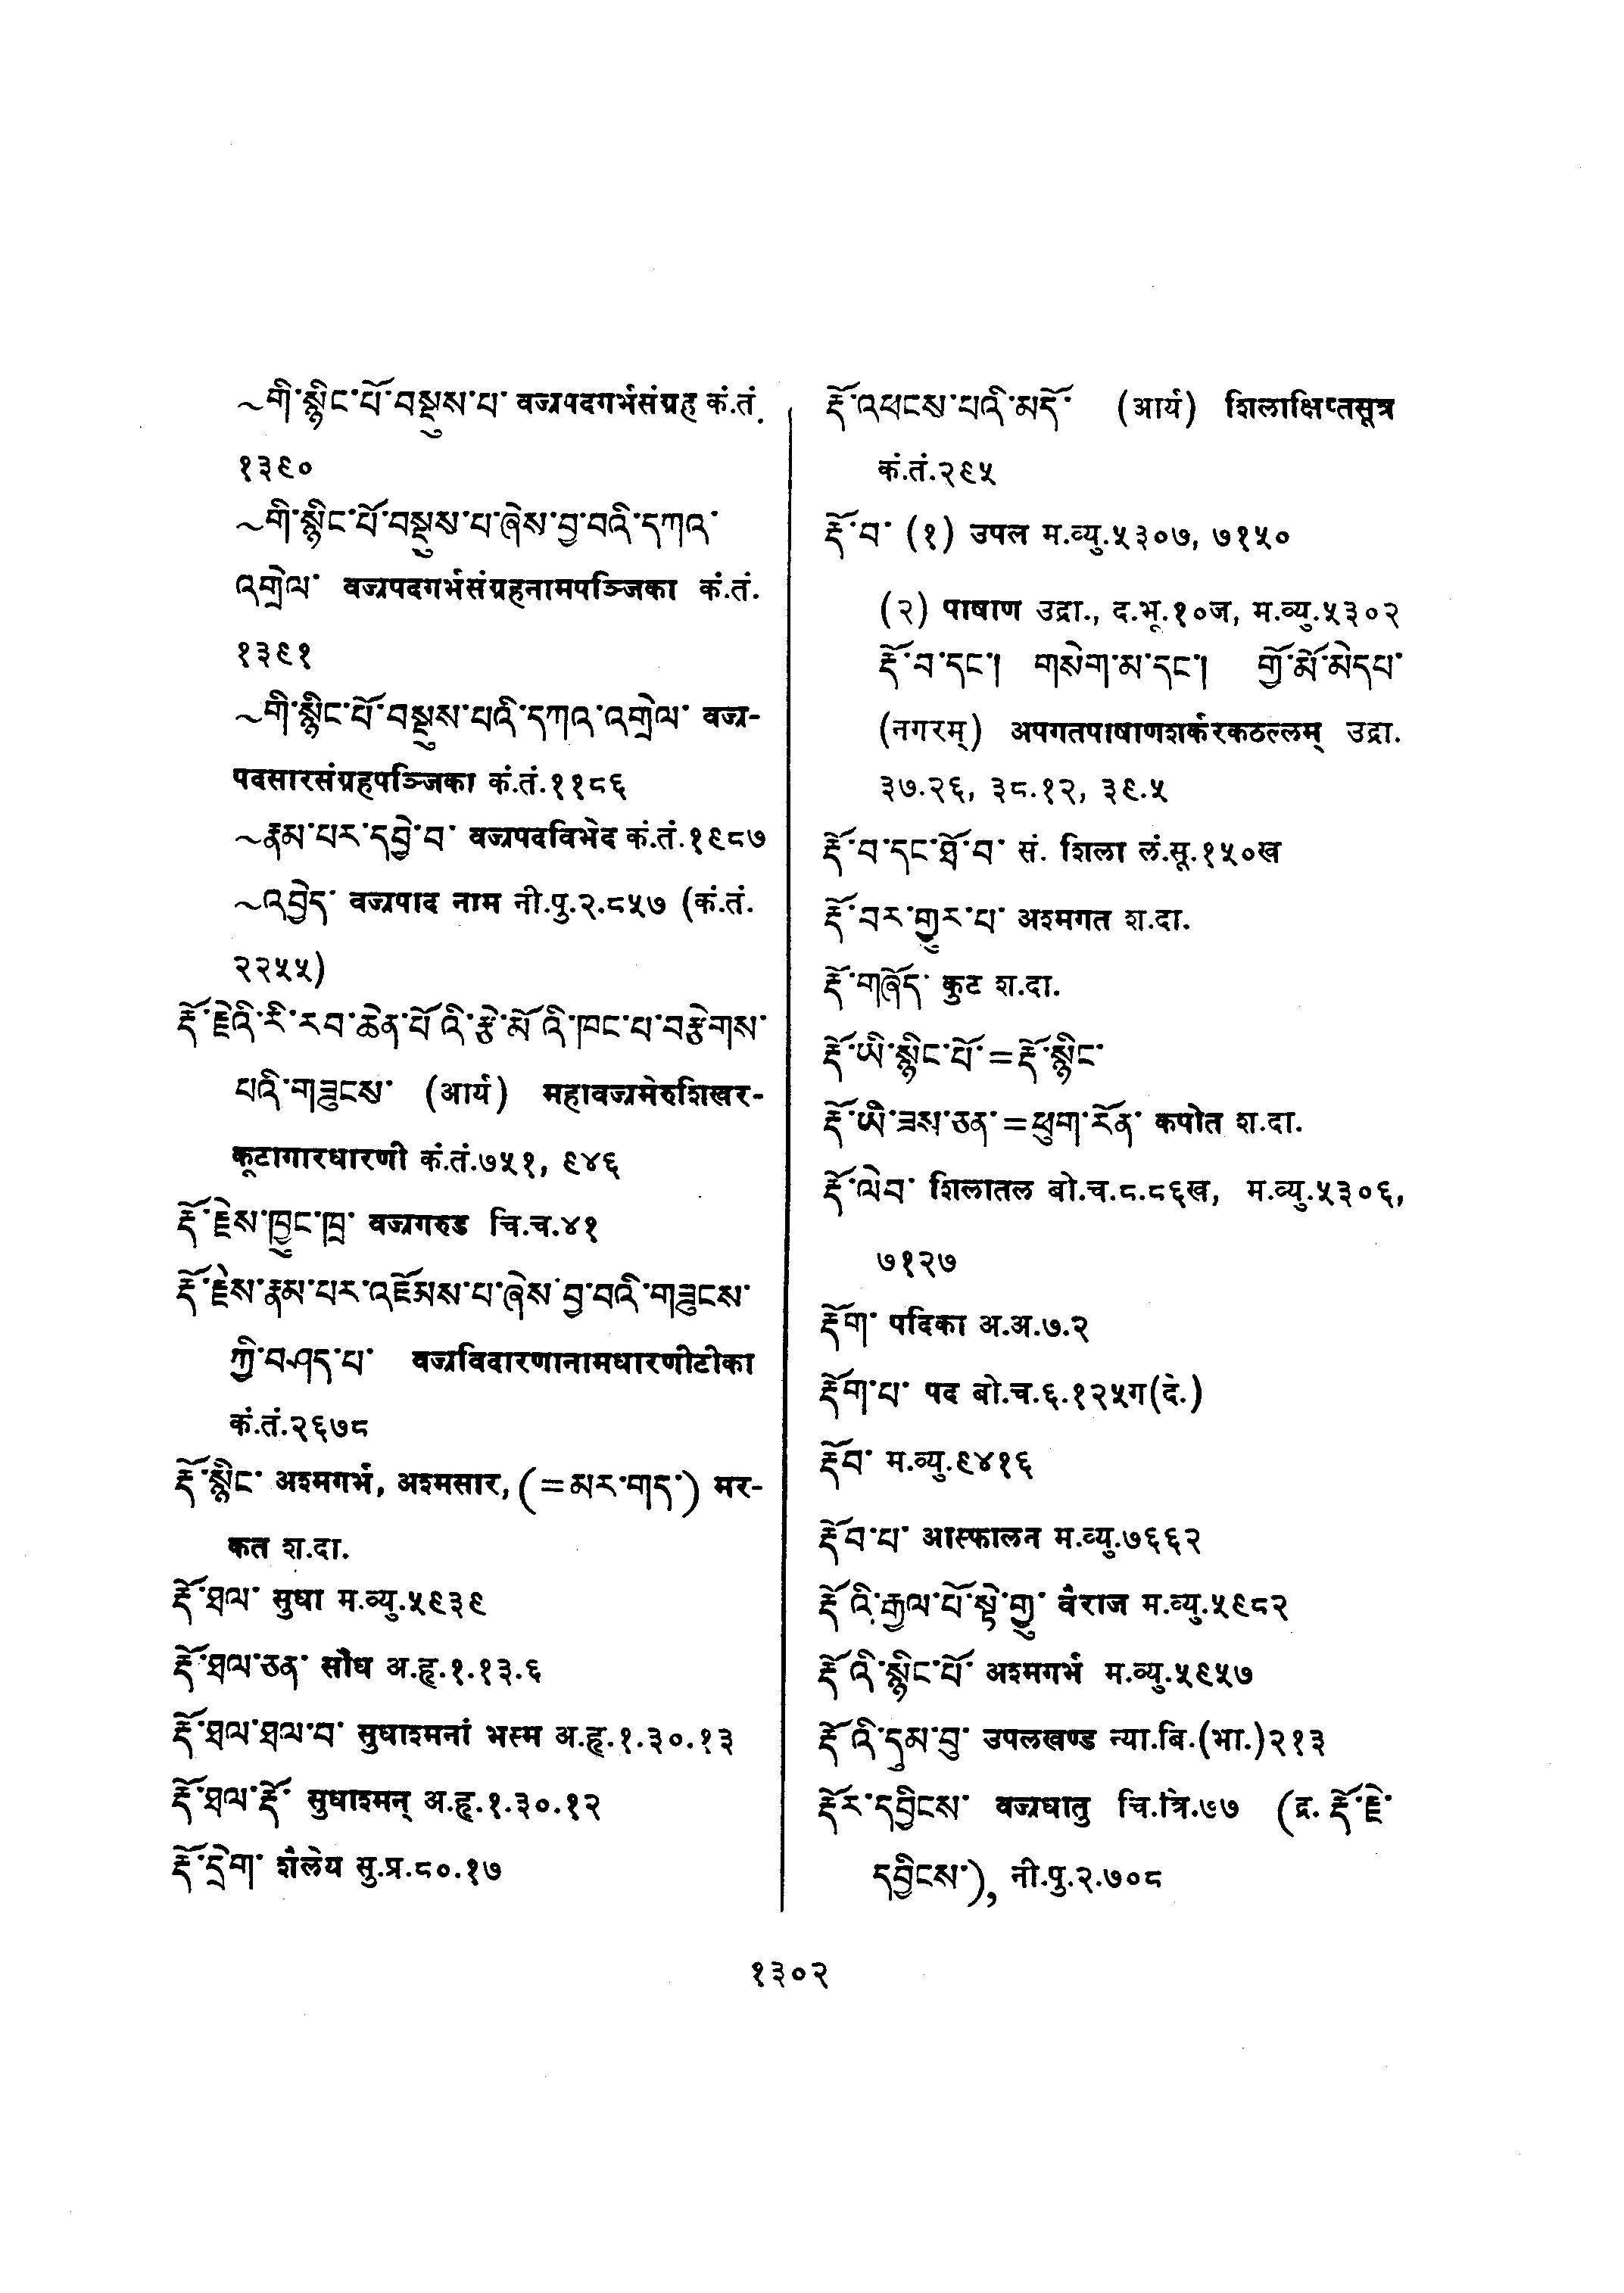 ~གི་སྙིང་པོ་བསྡུས་པ་ वज्रपदगर्भसंग्रह कं.तं.
१३९०
~གི་སྙིང་པོ་བསྡུས་པ་ཞེས་བྱ་བའི་དཀའ་
འགྲེལ་ वज्रपदगर्भसंग्रहनामपञ्जिका कं.तं.
१३९१
~གི་སྙིང་པོ་བསྡུས་པའི་དཀའ་འགྲེལ་ वज्र-
पदसारसंग्रहपञ्जिका कं.तं.११८६
~རྣམ་པར་དབྱེ་བ་ वज्रपदविभेद कं.तं.१९८७
~འབྱེད་ वज्रपाद नाम नी.पु.२.८५७ (कं.तं.
२२५५)
རྡོ་རྗེའི་རི་རབ་ཆེན་པོའི་རྩེ་མོའི་ཁང་པ་བརྩེགས་
པའི་གཟུངས་ (आर्य) महावज्रमेरुशिखर-
कूटागारधारणी कं.तं.७५१, ९४६
རྡོ་རྗེས་ཁྱུང་ཁྲ་ वज्रगरुड चि.च.४१
རྡོ་རྗེས་རྣམ་པར་འཇོམས་པ་ཞེས་བྱ་བའི་གཟུངས་
ཀྱི་བཤད་པ་ वज्रविदारणानामधारणीटीका
कं.तं.२६७८
རྡོ་སྙིང་ अश्मगर्भ, अश्मसार, (=མར་གད་) मर-
कत श.दा.
རྡོ་ཐལ་ सुधा म.व्यु.५९३९
རྡོ་ཐལ་ཅན་ सौध अ.हृ.१.१३.६
རྡོ་ཐལ་ཐལ་བ་ सुधाश्मनां भस्म अ.हृ.१.३०.१३
རྡོ་ཐལ་རྡོ་ सुधाश्मन् अ.हृ.१.३०.१२
རྡོ་དྲེག་ शैलेय सु.प्र.८०.१७
རྡོ་འཕངས་པའི་མདོ་ (आर्य) शिलाक्षिप्तसूत्र
कं.तं.२९५
རྡོ་བ་ (१) उपल म.व्यु.५३०७, ७१५०
(२) पाषाण उद्रा., द.भू.१०ज, म.व्यु.५३०२
རྡོ་བ་དང་། གསེག་མ་དང་། གྱོ་མོ་མེདཔ་
(नगरम्) अपगतपाषाणशर्करकठल्लम् उद्रा.
३७.२६, ३८.१२, ३९.५
རྡོ་བ་དང་ཐོ་བ་ सं. शिला लं.सू.१५०ख
རྡོ་བར་གྱུར་པ་ अश्मगत श.दा.
རྡོ་གཞོད་ कुट श.दा.
རྡོ་ཡི་སྙིང་པོ་=རྡོ་སྙིང་
རྡོ་ཡི་ཟས་ཅན་=ཕུག་རོན་ कपोत श.दा.
རྡོ་ལེབ་ शिलातल बो.च.८.८६ख, म.व्यु.५३०६,
७१२७
རྡོག་ पदिका अ.अ.७.२
རྡོག་པ་ पद बो.च.६.१२५ग(दे.)
རྡོབ་ म.व्यु.९४१६
རྡོབ་པ་ आस्फालन म.व्यु.७६६२
རྡོའི་རྒྱལ་པོ་སྟེ་གྱུ་ वैराज म.व्यु.५९८२
རྡོའི་སྙིང་པོ་ अश्मगर्भ म.व्यु.५९५७
རྡོའི་དུམ་བུ་ उपलखण्ड न्या.बि.(भा.)२१३
རྡོར་དབྱིངས་ वज्रधातु चि.त्रि.७७ (द्र. རྡོ་རྗེ་
དབྱིངས་), नी.पु.२.७०८
१३०२